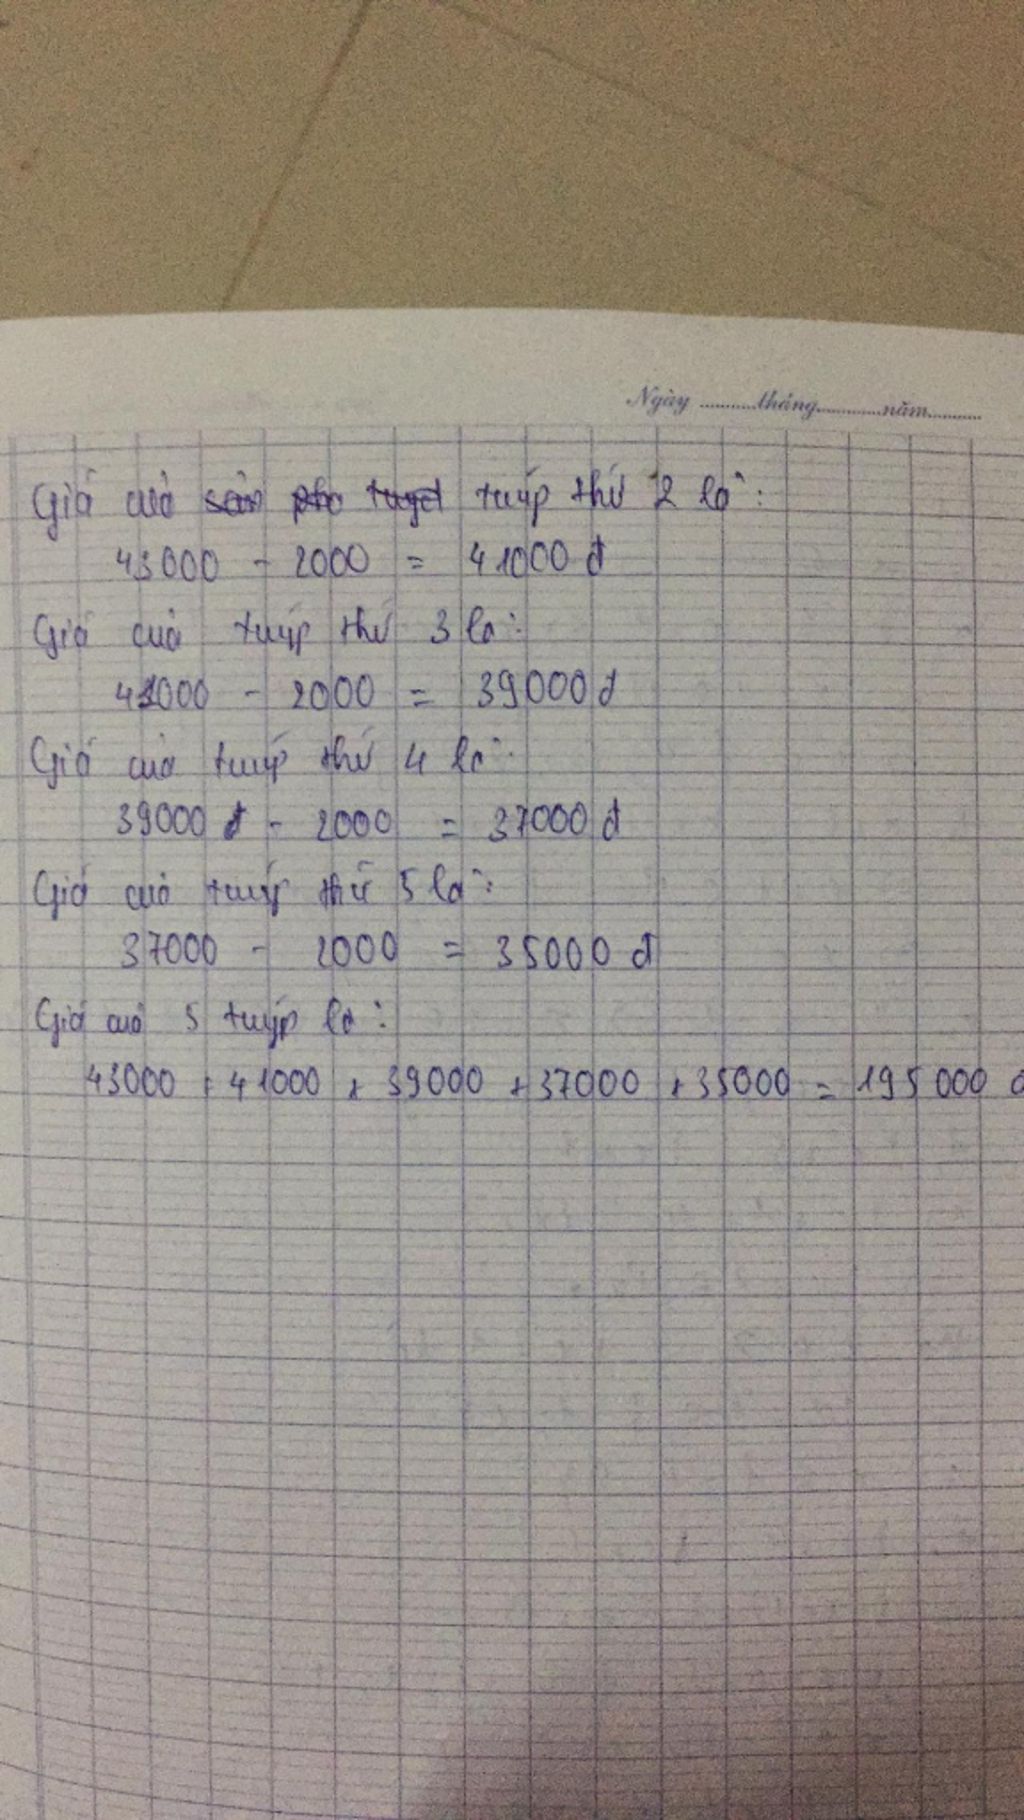 Ngày ..........tháng..........năm..........
Giá của sản phẩ tuyd tuýp thứ 2 là:
43000 - 2000 = 41000 đ
Giá của tuýp thứ 3 là:
41000 - 2000 = 39000 đ
Giá của tuýp thứ 4 là:
39000 đ - 2000 = 37000 đ
Giá của tuýp thứ 5 là:
37000 - 2000 = 35000 đ
Giá của 5 tuýp là:
43000 + 41000 + 39000 + 37000 + 35000 = 195000 đ